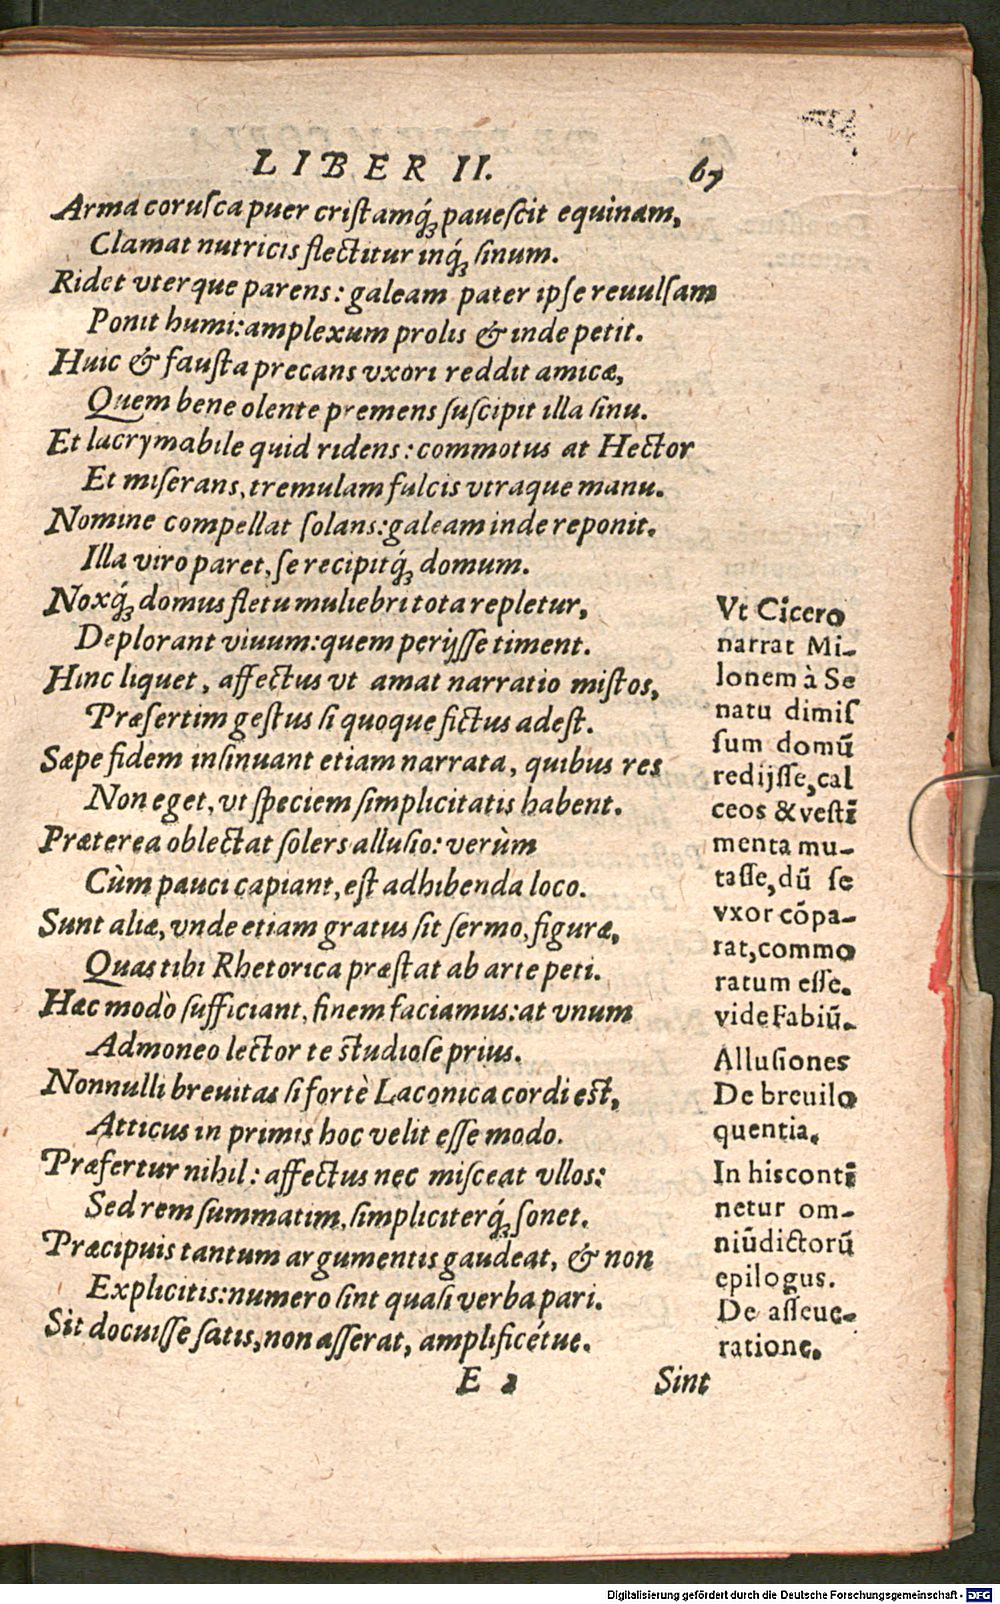 LIBER II. 67
Arma coruſca puer criſtamq́ꝫ paueſcit equinam,
Clamat nutricis flectitur inq́ꝫ ſinum.
Ridet vterque parens: galeam pater ipſe reuulſam
Ponit humi: amplexum prolis & inde petit.
Huic & fauſta precans vxori reddit amicæ,
Quem bene olente premens ſuſcipit illa ſinu.
Et lacrymabile quid ridens: commotus at Hector
Et miſerans, tremulam fulcis vtraque manu.
Nomine compellat ſolans: galeam inde reponit.
Illa viro paret, ſe recipitq́ꝫ domum.
Noxq́ꝫ domus fletu muliebri tota repletur,
Deplorant viuum: quem perijſſe timent.
Hinc liquet, affectus vt amat narratio miſtos,
Præſertim geſtus ſi quoque fictus adeſt.
Sæpe fidem inſinuant etiam narrata, quibus res
Non eget, vt ſpeciem ſimplicitatis habent.
Præterea oblectat ſolers alluſio: verùm
Cùm pauci capiant, eſt adhibenda loco.
Sunt aliæ, vnde etiam gratus ſit ſermo, figuræ,
Quas tibi Rhetorica præſtat ab arte peti.
Hæc modò ſufficiant, finem faciamus: at vnum
Admoneo lector te ſtudioſe prius.
Nonnulli breuitas ſi fortè Laconica cordi eſt,
Atticus in primis hoc velit eſſe modo.
Præfertur nihil: affectus nec miſceat vllos:
Sed rem ſummatim, ſimpliciterq́ꝫ ſonet.
Præcipuis tantum argumentis gaudeat, & non
Explicitis: numero ſint quaſi verba pari.
Sit docuiſſe ſatis, non aſſerat, amplificétue.
E 2 Sint
Vt Cicero
narrat Mi-
lonem à Se
natu dimiſ
ſum domū
redijſſe, cal
ceos & veſti
menta mu-
taſſe, dū ſe
vxor cōpa-
rat, commo
ratum eſſe.
vide Fabiū.
Alluſiones
De breuilo
quentia.
In his conti
netur om-
niū dictorū
epilogus.
De aſſeue-
ratione.
Digitalisierung gefördert durch die Deutsche Forschungsgemeinschaft - DFG